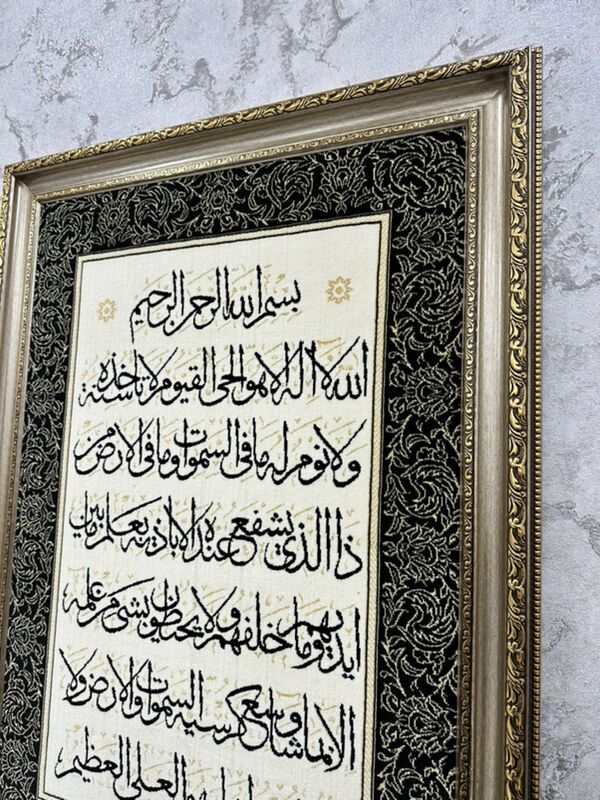 بسم الله الرحمن الرحيم
الله لا اله الا هو الحي القيوم لا تاخذه سنة
ولا نوم له ما في السموات وما في الارض من
ذا الذي يشفع عنده الا باذنه يعلم ما بين
ايديهم وما خلفهم ولا يحيطون بشيء من علمه
الا بما شاء وسع كرسيه السموات والارض ولا
وهو العلي العظيم